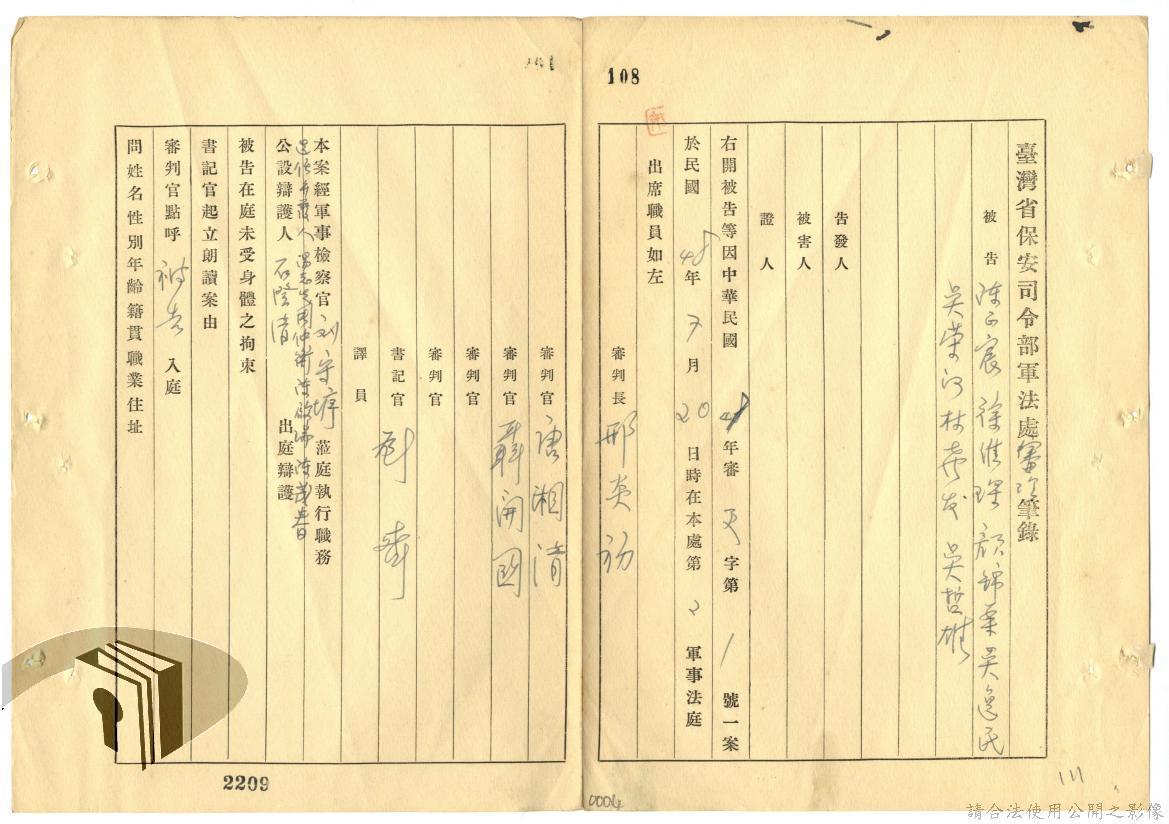 108
臺灣省保安司令部軍法處審理筆錄
被告 陳正宸 徐淮琛 顏錦華 吳逸民
吳榮河 林堯友 吳哲雄
告發人
被害人
證人
右開被告等因中華民國 48 年審 更 字第 1 號一案
於民國 48 年 7 月 20 日時在本處第 2 軍事法庭
出席職員如左
審判長 邢炎初
審判官 唐湘清
審判官 聶開國
審判官
審判官
書記官
譯員
本案經軍事檢察官 蒞庭執行職務
選任辯護人
公設辯護人 石隱清 出庭辯護
被告在庭未受身體之拘束
書記官起立朗讀案由
審判官點呼 被告 入庭
問姓名性別年齡籍貫職業住址
2209
0004
111
請合法使用公開之影像